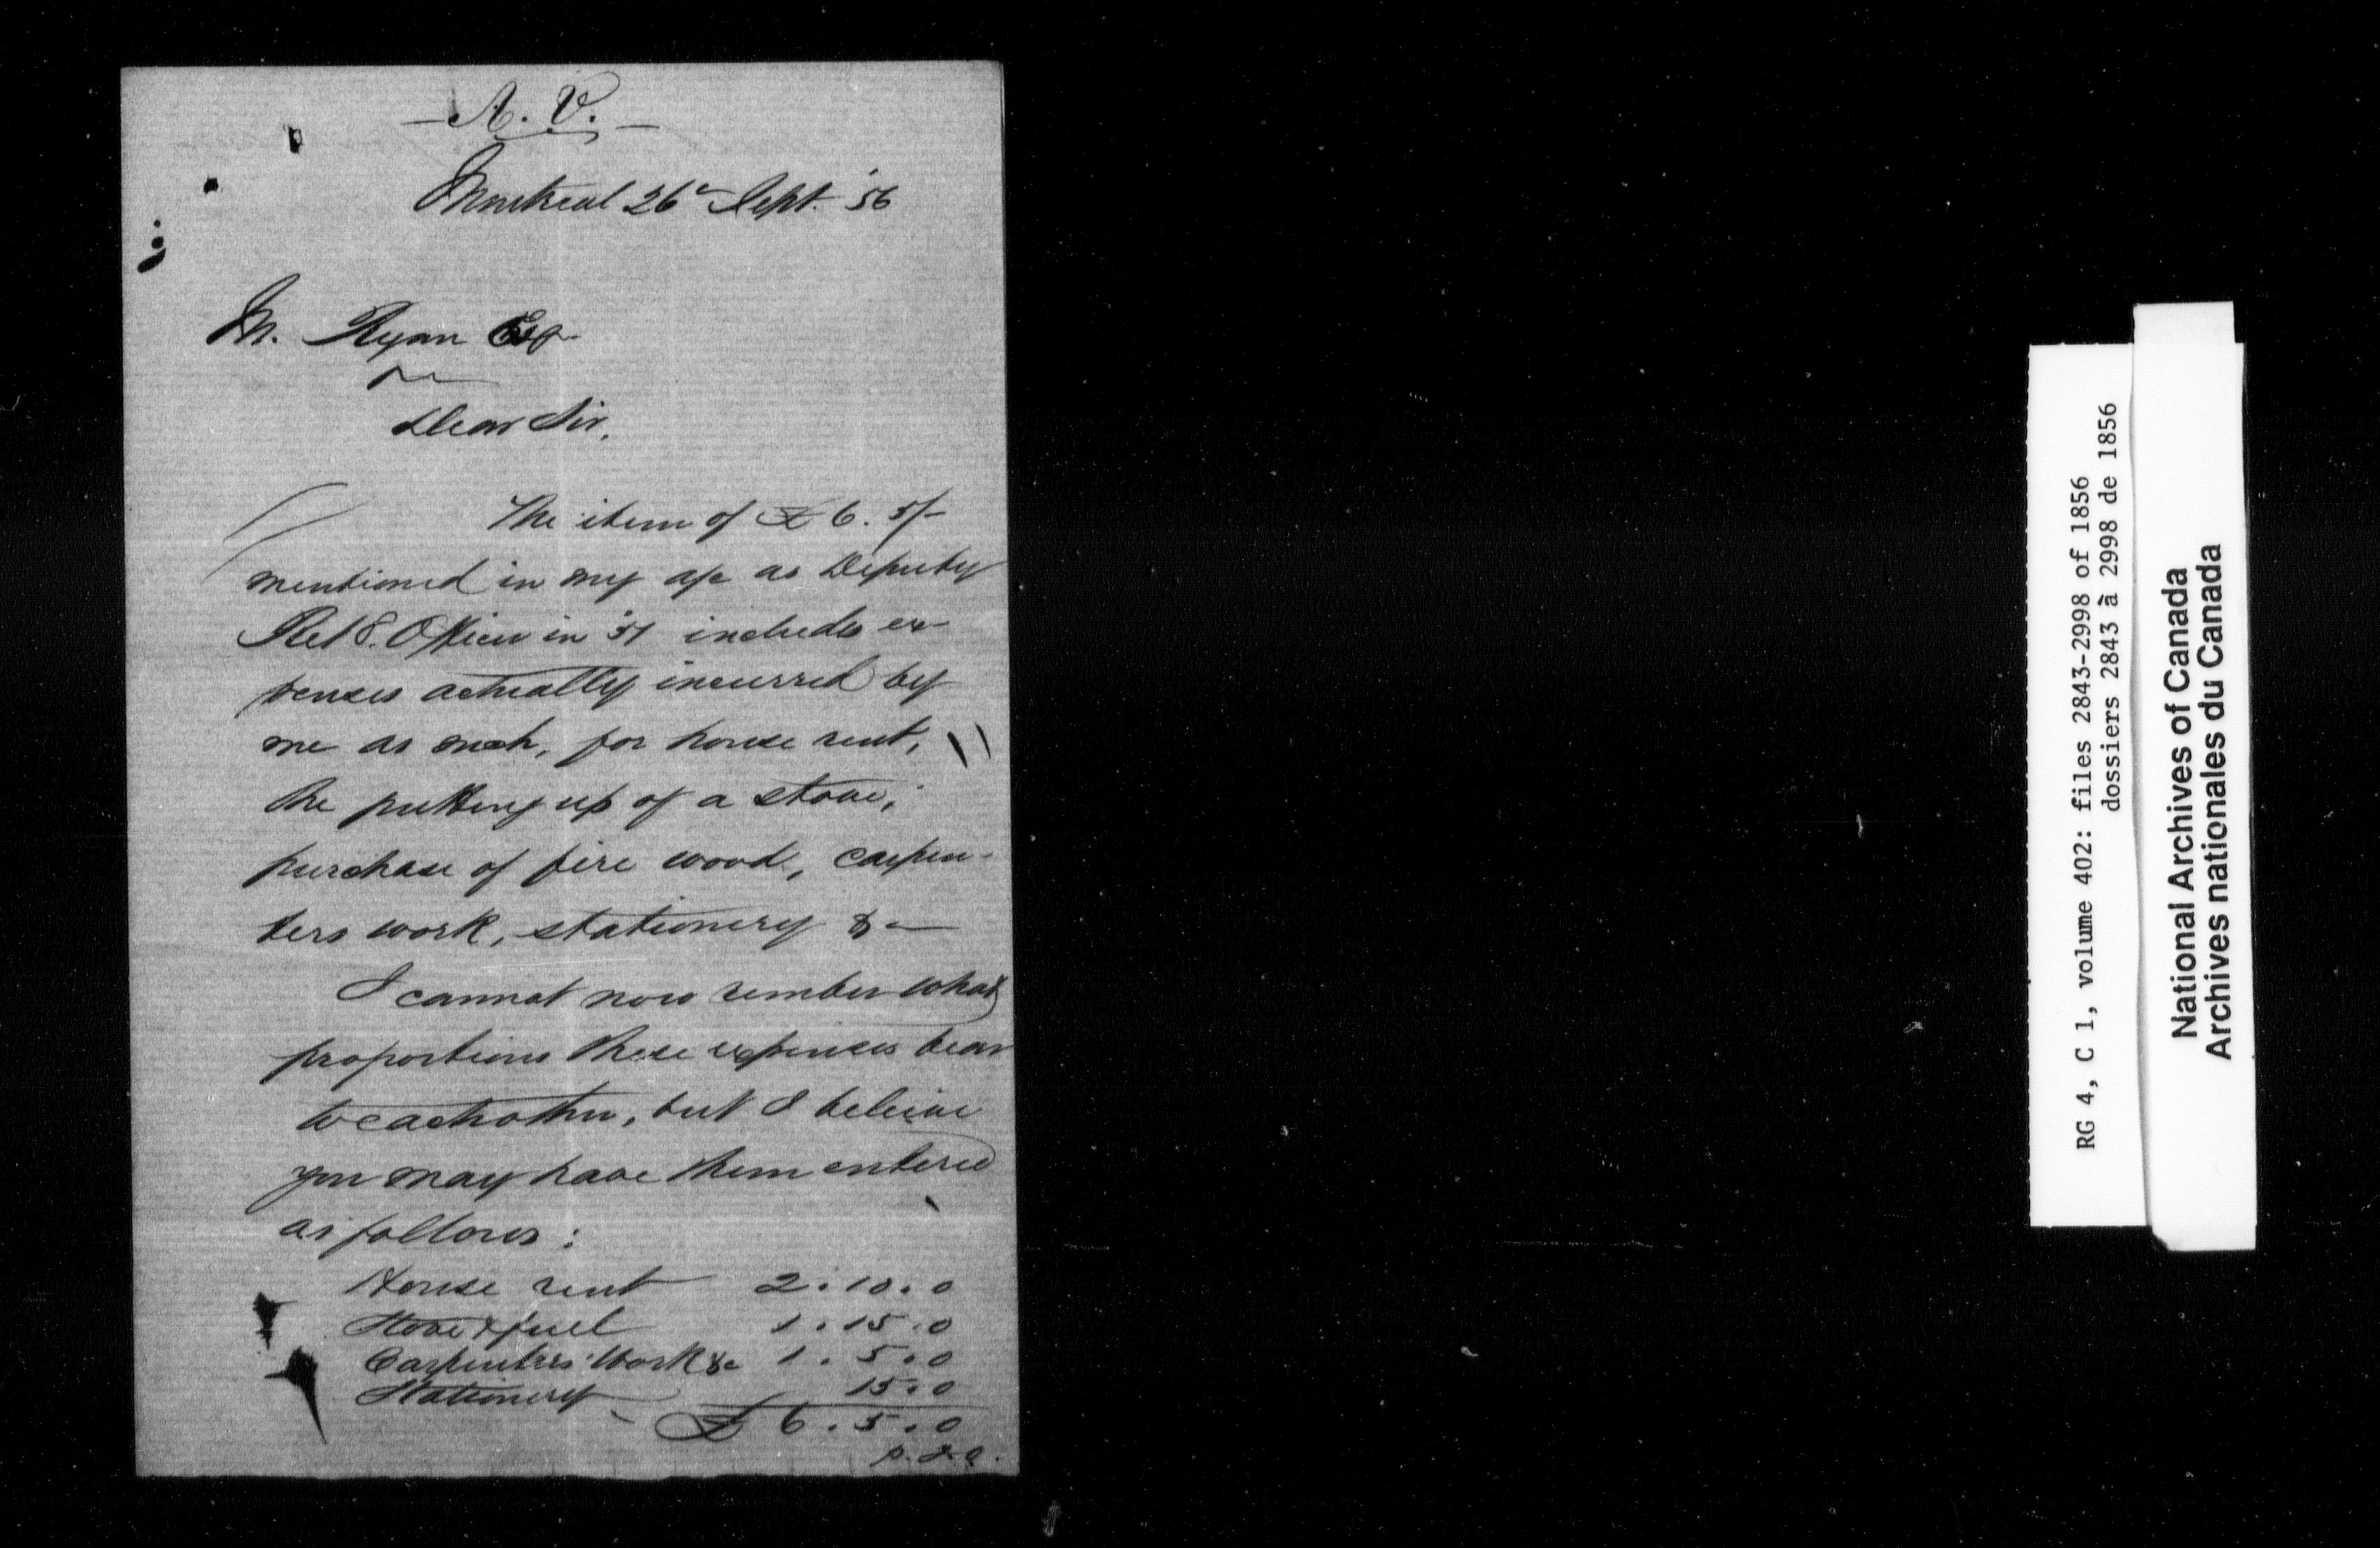 A. V.
Montreal 26 Sept. '56
M. Ryan Esq
Dear Sir,
The item of £ 6. 5/-
mentioned in my a/c as Deputy
Ret g. Officer in '51 includes ex-
penses actually incurred by
me as such, for house rent,
the putting up of a stove,
purchase of fire wood, carpen-
ters work, stationery &c
I cannot now rember what
proportions these expenses bear
to eachother, but I beleive
you may have them entered
as follows:
House rent 2.10.0
Stove & fuel 1.15.0
Carpenters work &c 1.5.0
Stationery 15.0
£ 6.5.0
RG 4, C 1, volume 402: files 2843-2998 of 1856
dossiers 2843 à 2998 de 1856
National Archives of Canada
Archives nationales du Canada